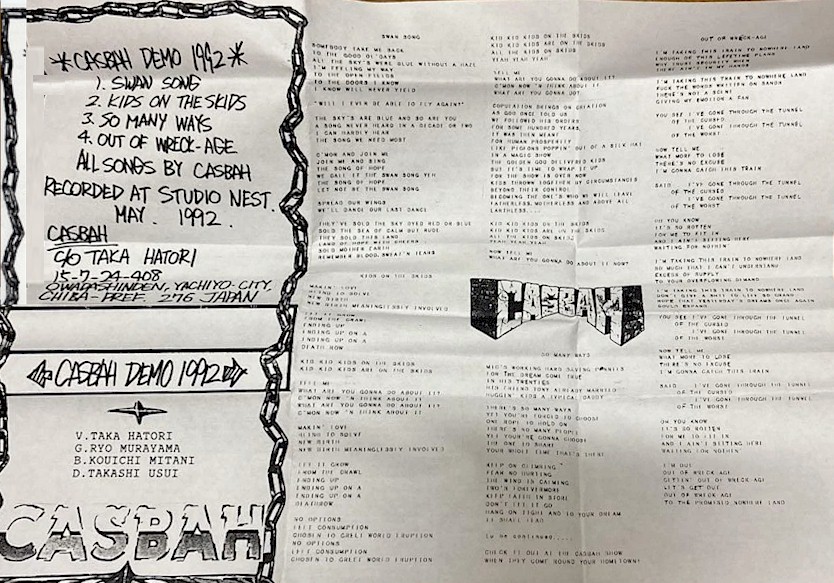 *CASBAH DEMO 1992*
1. SWAN SONG
2. KIDS ON THE SKIDS
3. SO MANY WAYS
4. OUT OF WRECK-AGE
ALL SONGS BY CASBAH
RECORDED AT STUDIO NEST.
MAY. 1992.
CASBAH
C/O TAKA HATORI
15-7-24-408
OWADASHINDEN, YACHIYO-CITY,
CHIBA-PREF. 276 JAPAN
CASBAH DEMO 1992
V.TAKA HATORI
G.RYO MURAYAMA
B.KOUICHI MITANI
D.TAKASHI USUI
CASBAH
SWAN SONG
SOMEBODY TAKE ME BACK
TO THE GOOD OL'DAYS
ALL THE SKY'S WERE BLUE WITHOUT A HAZE
I'M FEELING MY WAY
TO THE OPEN FIELDS
TO THE DOORS I KNOW
I KNOW WILL NEVER YIELD
"WELL I EVER BE ABLE TO FLY AGAIN?"
THE SKY'S ARE BLUE AND SO ARE YOU
A SONG NEVER HEARD IN A DECADE OR TWO
I CAN HARDLY HEAR
THE SONG WE NEED MOST
C'MON AND JOIN ME
JOIN ME AND SING
THE SONG OF HOPE
WE CALL IT THE SWAN SONG YEH
THE SONG OF HOPE
LET NOT BE THE SWAN SONG
SPREAD OUR WINGS
WE'LL DANCE OUR LAST DANCE
THEY'VE SOLD THE SKY DYED RED OR BLUE
SOLD THE SEA OF CALM BUT RUDE
THEY SOLD THIS LAND
LAND OF HOPE WITH GREEDS
SOLD MOTHER EARTH
REMEMBER BLOOD, SWEAT'N TEARS
KIDS ON THE SKIDS
MAKIN' LOVE
NEW BIRTH
NEW BIRTH MEANINGLESSLY INVOLVED
LET IT GROW
FROM THE CRAWL
ENDING UP
ENDING UP ON A
ENDING UP ON A
DEATH ROW
KID KID KIDS ON THE SKIDS
KID KID KIDS ARE ON THE SKIDS
TELL ME
WHAT ARE YOU GONNA DO ABOUT IT?
C'MON NOW 'N THINK ABOUT IT
WHAT ARE YOU GONNA DO ABOUT IT?
C'MON NOW 'N THINK ABOUT IT
MAKIN' LOVE
NEW BIRTH
NEW BIRTH MEANINGLESSLY INVOLVED
LET IT GROW
FROM THE CRAWL
ENDING UP
ENDING UP ON A
ENDING UP ON A
DEATHROW
NO OPTIONS
LEFT CONSUMPTION
CHOSEN TO GREET WORLD ERUPTION
NO OPTIONS
LEFT CONSUMPTION
CHOSEN TO GREET WORLD ERUPTION
KID KID KIDS ON THE SKIDS
KID KID KIDS ARE ON THE SKIDS
ALL THE KIDS ON SKIDS
YEAH YEAH YEAH
TELL ME
WHAT ARE YOU GONNA DO ABOUT IT?
C'MON NOW 'N THINK ABOUT IT
WHAT ARE YOU GONNA DO?
COPULATION BRINGS ON CREATION
AS GOD ONCE TOLD US
WE FOLLOWED HIS ORDERS
FOR SOME HUNDRED YEARS
IT WAS THEN MEANT
FOR HUMAN PROSPERITY
LIKE PIGEONS POPPIN' OUT OF A SILK HAT
IN A MAGIC SHOW
THE GOLDEN GOD DELIVERED KIDS
BUT IT'S TIME TO WRAP IT UP
FOR THE SHOW IS OVER NOW
KIDS THROWN TOGETHER BY CIRCUMSTANCES
BEYOND THEIR CONTROL
BECOMING THE ONE'S WHO WILL LEAVE
FATHERLESS, MOTHERLESS AND ABOVE ALL
EARTHLESS...
KID KID KIDS ON THE SKIDS
KID KID KIDS ARE ON THE SKIDS
ALL THE KIDS ON SKIDS
YEAH YEAH YEAH
NOW TELL ME
WHAT ARE YOU GONNA DO ABOUT IT NOW?
CASBAH
SO MANY WAYS
MIC'S WORKING HARD SAVING PENNIES
FOR THE DREAM COME TRUE
IN HIS TWENTIES
HIS FRIEND TONY ALREADY MARRIED
HUGGIN' KIDS A TYPICAL DADDY
THERE'S SO MANY WAYS
YET YOU'RE FORCED TO CHOOSE
ONE HOPE TO HOLD ON
THERE'S SO MANY PEOPLE
YET YOU'RE GONNA CHOOSE
THE ONE TO SHARE
YOUR WHOLE TIME THAT'S THERE
KEEP ON CLIMBING
FEAR NO HURTING
THE WIND IS CALMING
TWO'S FOREVERMORE
KEEP FAITH IN STORE
DON'T LET IT GO
HANG ON TIGHT AND TO YOUR DREAM
IT SHALL LEAD
TO BE CONTINUED....
CHECK IT OUT AT THE CASBAH SHOW
WHEN THEY COME ROUND YOUR HOMETOWN!
OUT OF WRECK-AGE
I'M TAKING THIS TRAIN TO NOWHERE LAND
ENOUGH OF THIS LIFETIME PLANS
I'M TAKING THIS TRAIN TO NOWHERE LAND
FUCK THE WORDS WRITTEN ON SANDS
THERE'S NOT A SCENE
GIVING MY EMOTION A FAN
YOU SEE I'VE GONE THROUGH THE TUNNEL
OF THE CURSED
I'VE GONE THROUGH THE TUNNEL
OF THE WORST
NOW TELL ME
WHAT MORE TO LOSE
THERE'S NO EXCUSE
I'M GONNA CATCH THIS TRAIN
SAID I'VE GONE THROUGH THE TUNNEL
OF THE CURSED
I'VE GONE THROUGH THE TUNNEL
OF THE WORST
OH YOU KNOW
IT'S SO ROTTEN
FOR ME TO FIT IN
AND I AIN'T SITTING HERE
WAITING FOR NOTHIN'
I'M TAKING THIS TRAIN TO NOWHERE LAND
SO MUCH THAT I CAN'T UNDERSTAND
EXCESS OF SUPPLY
TO YOUR OVERFLOWING DEMAND
I'M TAKING THIS TRAIN TO NOWHERE LAND
DON'T GIVE A SHIT TO LIFE SO GRAND
HOPE THAT YESTERDAY'S DREAMS ONCE AGAIN
COULD EXPAND
YOU SEE I'VE GONE THROUGH THE TUNNEL
OF THE CURSED
I'VE GONE THROUGH THE TUNNEL
OF THE WORST
NOW TELL ME
WHAT MORE TO LOSE
THERE'S NO EXCUSE
I'M GONNA CATCH THIS TRAIN
SAID I'VE GONE THROUGH THE TUNNEL
OF THE CURSED
I'VE GONE THROUGH THE TUNNEL
OF THE WORST
OH YOU KNOW
IT'S SO ROTTEN
FOR ME TO FIT IN
AND I AIN'T SITTING HERE
WAITING FOR NOTHIN'
I'M OUT
OUT OF WRECK-AGE
GETTIN' OUT OF WRECK-AGE
LET'S GET OUT
OUT OF WRECK-AGE
TO THE PROMISED NOWHERE LAND